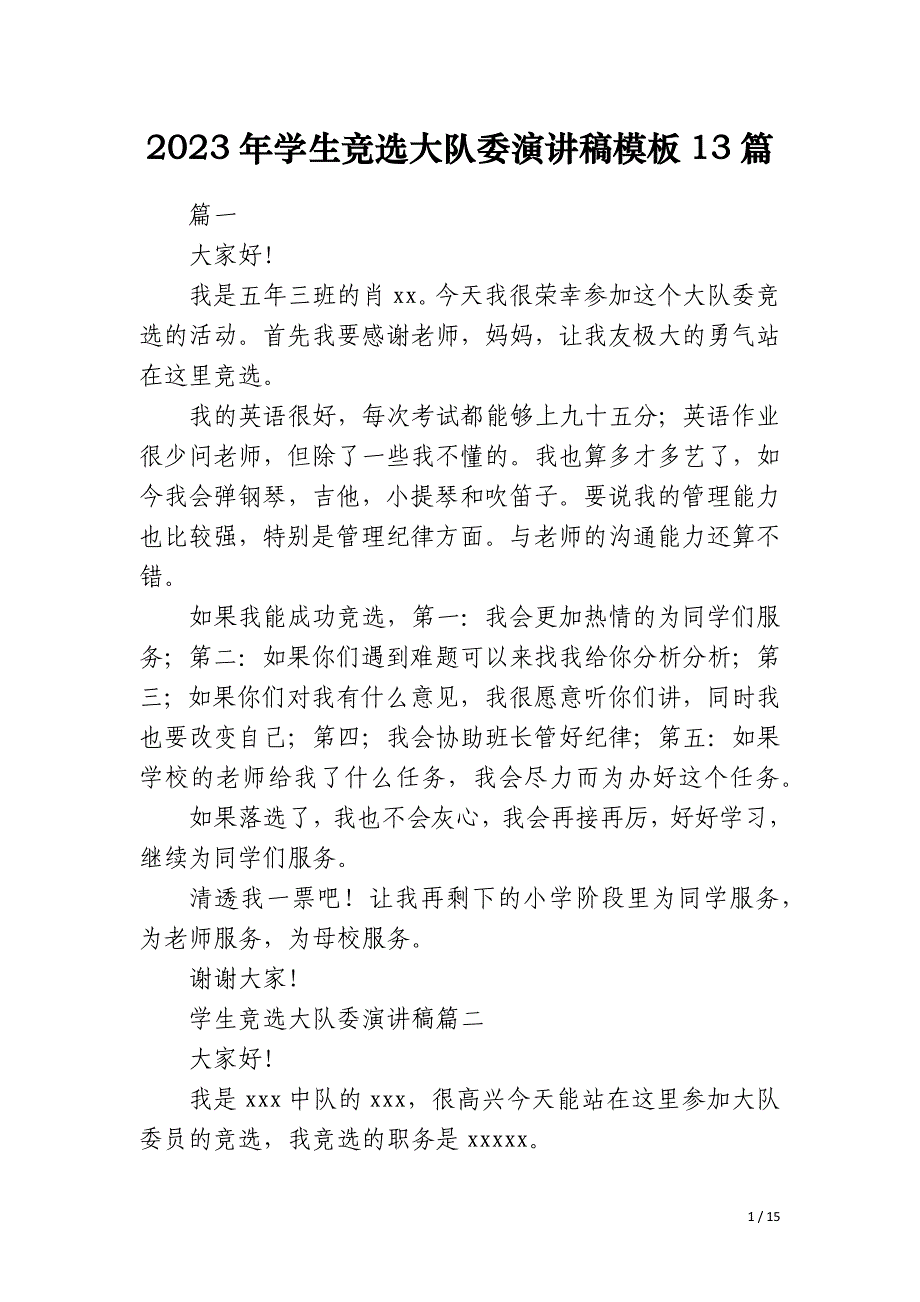 2023年学生竞选大队委演讲稿模板13篇
篇一
大家好！
我是五年三班的肖xx。今天我很荣幸参加这个大队委竞
选的活动。首先我要感谢老师，妈妈，让我友极大的勇气站
在这里竞选。
我的英语很好，每次考试都能够上九十五分；英语作业
很少问老师，但除了一些我不懂的。我也算多才多艺了，如
今我会弹钢琴，吉他，小提琴和吹笛子。要说我的管理能力
也比较强，特别是管理纪律方面。与老师的沟通能力还算不
错。
如果我能成功竞选，第一：我会更加热情的为同学们服
务；第二：如果你们遇到难题可以来找我给你分析分析；第
三；如果你们对我有什么意见，我很愿意听你们讲，同时我
也要改变自己；第四；我会协助班长管好纪律；第五：如果
学校的老师给我了什么任务，我会尽力而为办好这个任务。
如果落选了，我也不会灰心，我会再接再厉，好好学习，
继续为同学们服务。
清透我一票吧！让我再剩下的小学阶段里为同学服务，
为老师服务，为母校服务。
谢谢大家！
学生竞选大队委演讲稿篇二
大家好！
我是xxx中队的xxx，很高兴今天能站在这里参加大队
委员的竞选，我竞选的职务是xxxxx。
1 / 15